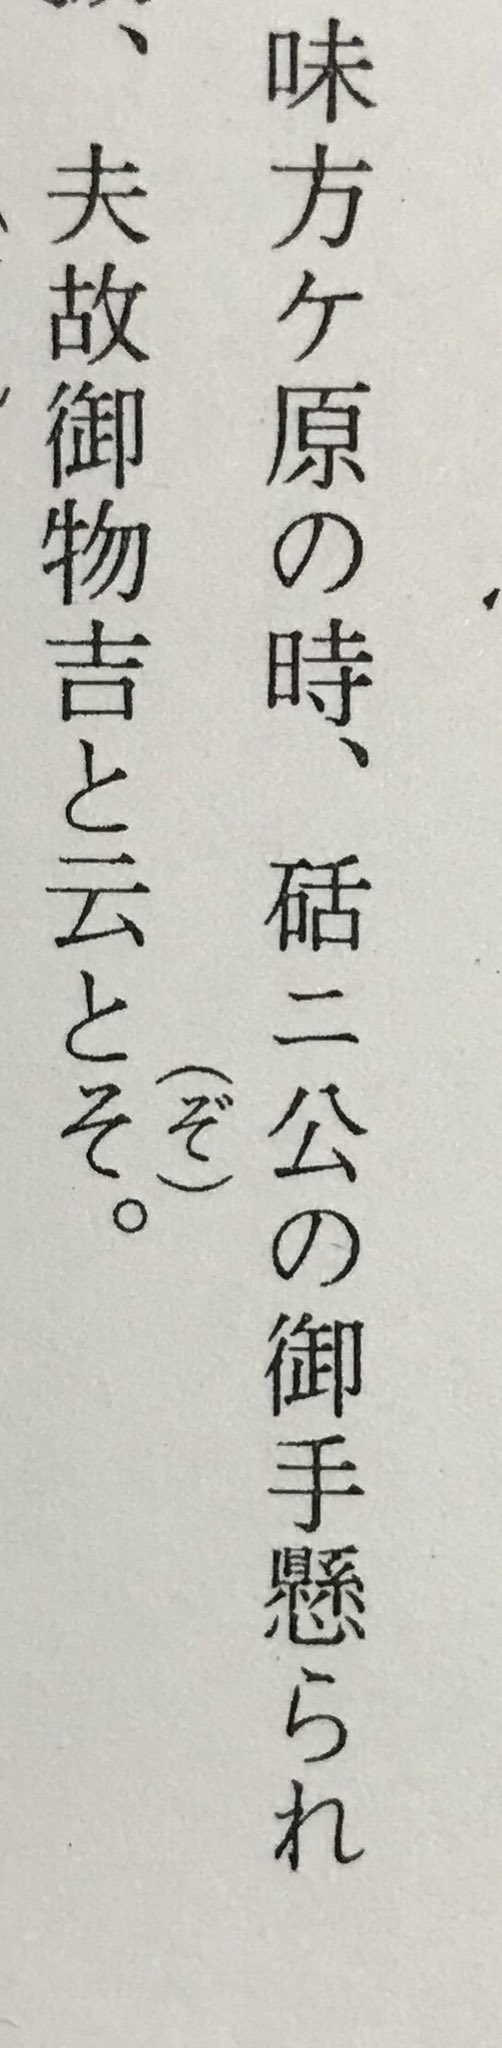 味方ケ原の時、砳ニ公の御手懸られ
、夫故御物吉と云とそ。
(ぞ)